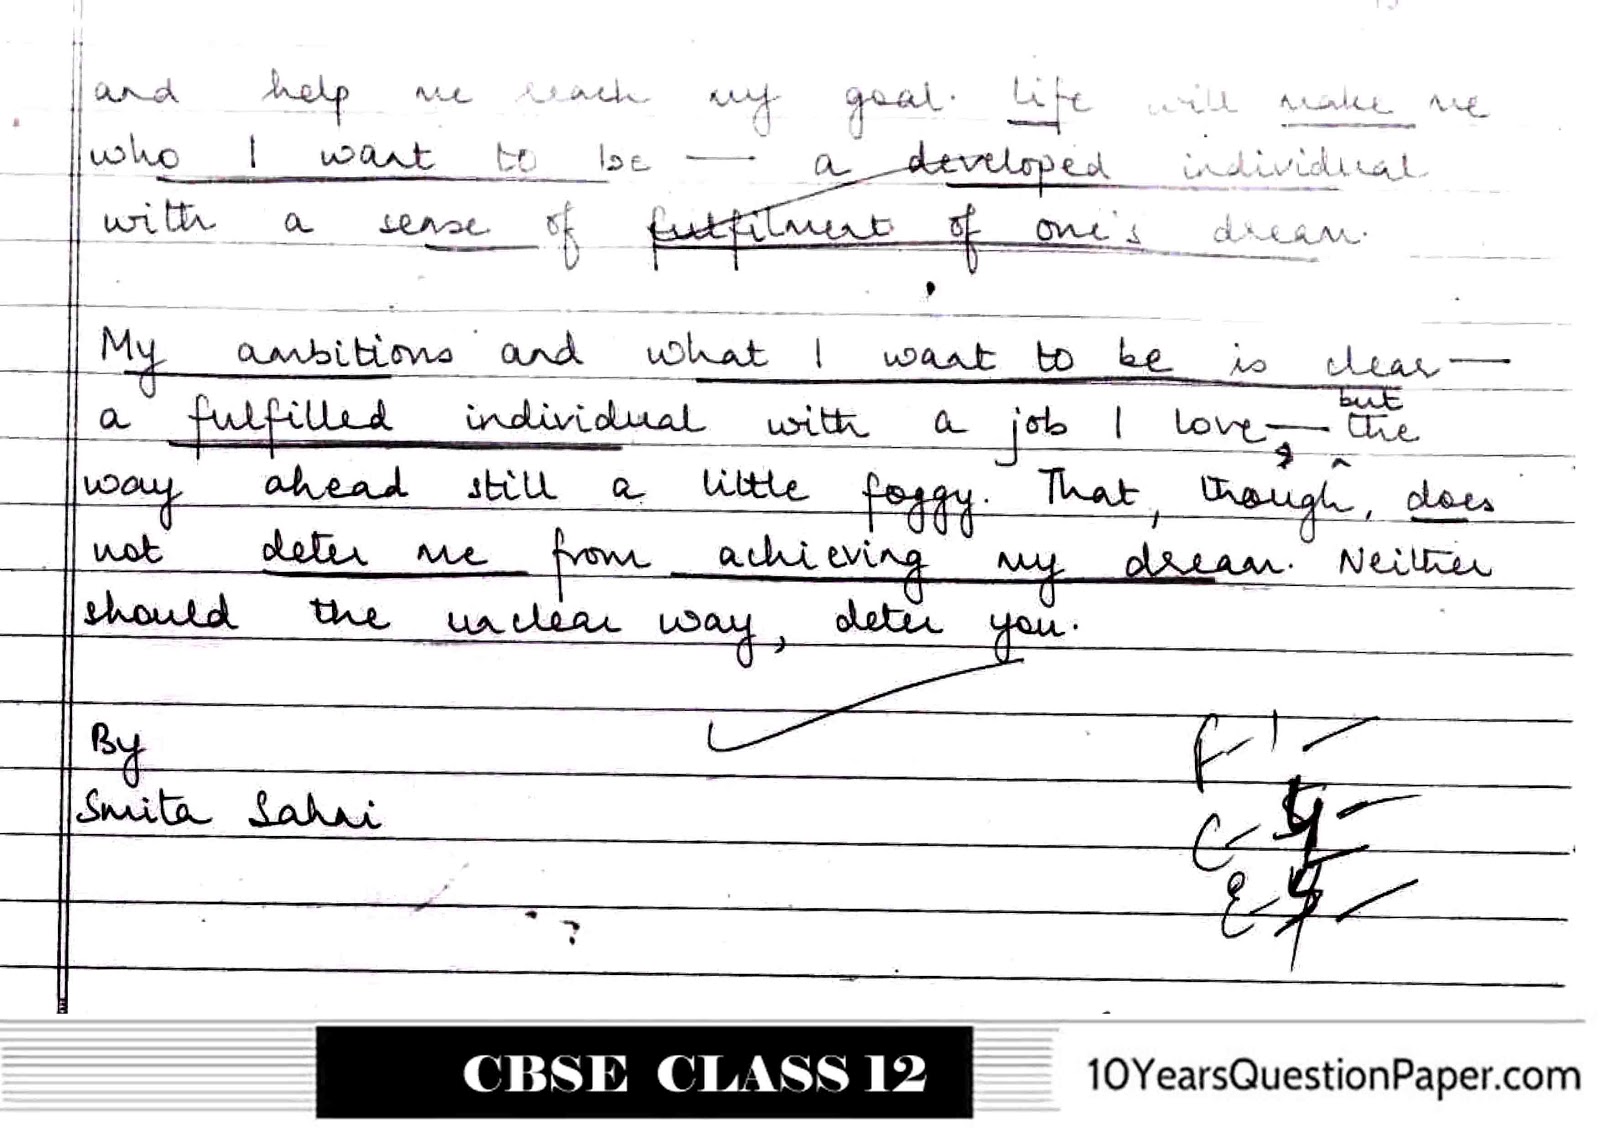 and help me reach my goal. Life will make me
who I want to be — a developed individual
with a sense of fulfilment of one's dream.
My ambitions and what I want to be is clear —
a fulfilled individual with a job I love, — but the
way ahead still a little foggy. That, though, does
not deter me from achieving my dream. Neither
should the unclear way, deter you.
By
Smita Sahni
F - 1
C - 4
E -
CBSE CLASS 12
10YearsQuestionPaper.com